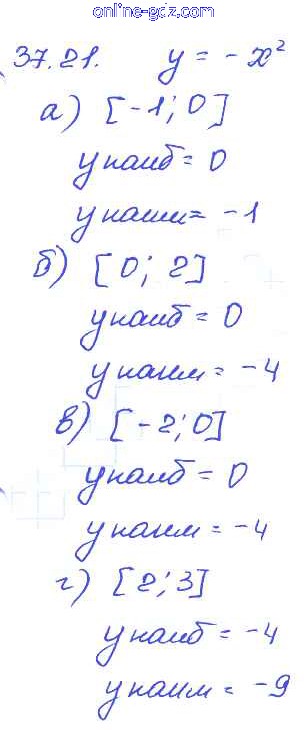 online-gdz.com
37.21. y = -x²
а) [-1; 0]
y наиб = 0
y наим = -1
б) [0; 2]
y наиб = 0
y наим = -4
в) [-2; 0]
y наиб = 0
y наим = -4
г) [2; 3]
y наиб = -4
y наим = -9